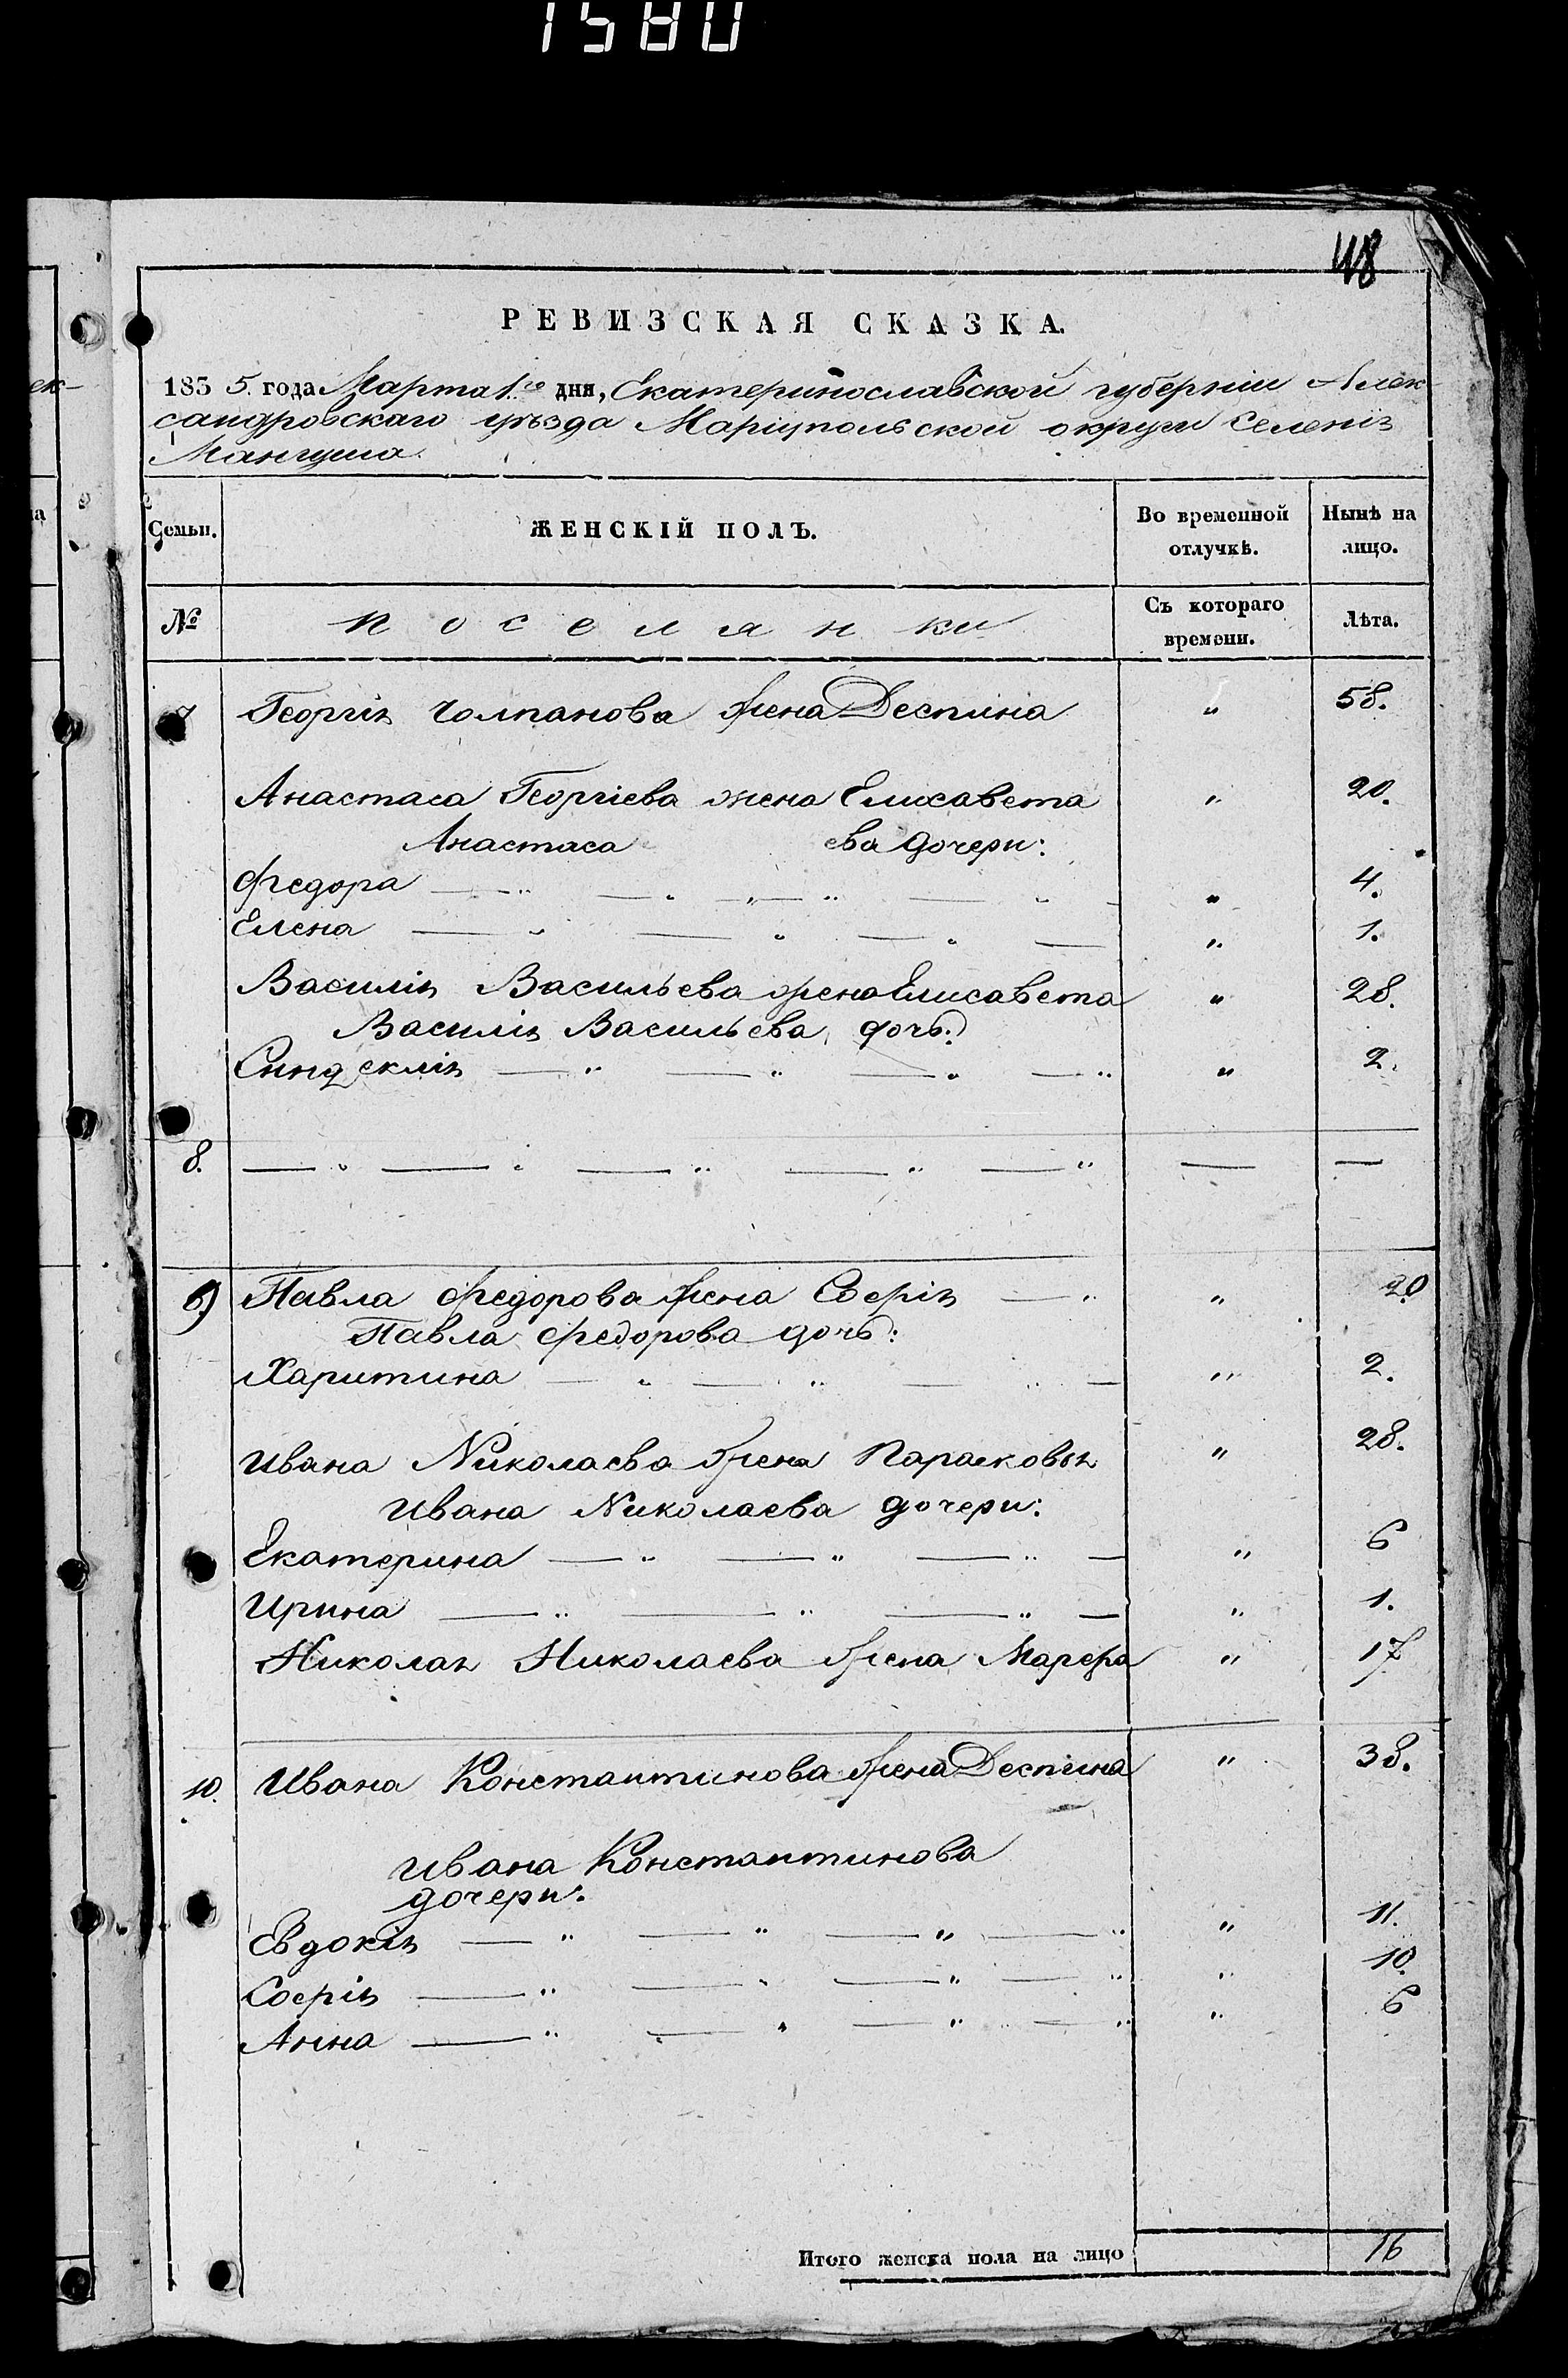 1580
48
РЕВИЗСКАЯ СКАЗКА.
1835. года Марта 1го дня, Екатеринославской губерніи Алек-
сандровскаго уѣзда Маріупольской округи Селенія
Мангуша.
Семьи. ЖЕНСКІЙ ПОЛЪ. Во временной отлучкѣ. Нынѣ на лицо.
№ Поселянки Съ котораго времени. Лѣта.
7 Георгія Чолпанова жена Деспина " 58.
Анастаса Георгіева жена Елисавета " 20.
Анастаса ева дочери:
Федора — " — " — " — " — " 4.
Елена — " — " — " — " 1.
Василія Васильева жена Елисавета " 28.
Василія Васильева дочь:
Синдеклія — " — " — " — " " 2.
8. — " — " — " — " — " — —
9) Павла Федорова жена Софія — " " 20
Павла Федорова дочь:
Харитина — " — " — " — " 2.
Ивана Николаева жена Парасковья " 28.
Ивана Николаева дочери:
Екатерина — " — " — " — " 6
Ирина — " — " — " — " 1.
Николая Николаева жена Марфа " 17
10. Ивана Константинова жена Деспина " 38.
Ивана Константинова
дочери:
Евдокія — " — " — " — " " 11.
Софія — " — " — " — " " 10.
Анна — " — " — " — " " 6
Итого женска пола на лицо 16